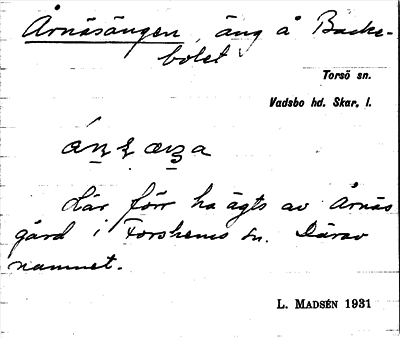 Årnäsängen, äng å Backe-
bolet
Torsö sn.
Vadsbo hd. Skar. l.
Lär förr ha ägts av Årnäs
gård i Forshems sn. Därav
namnet.
L. MADSÉN 1931